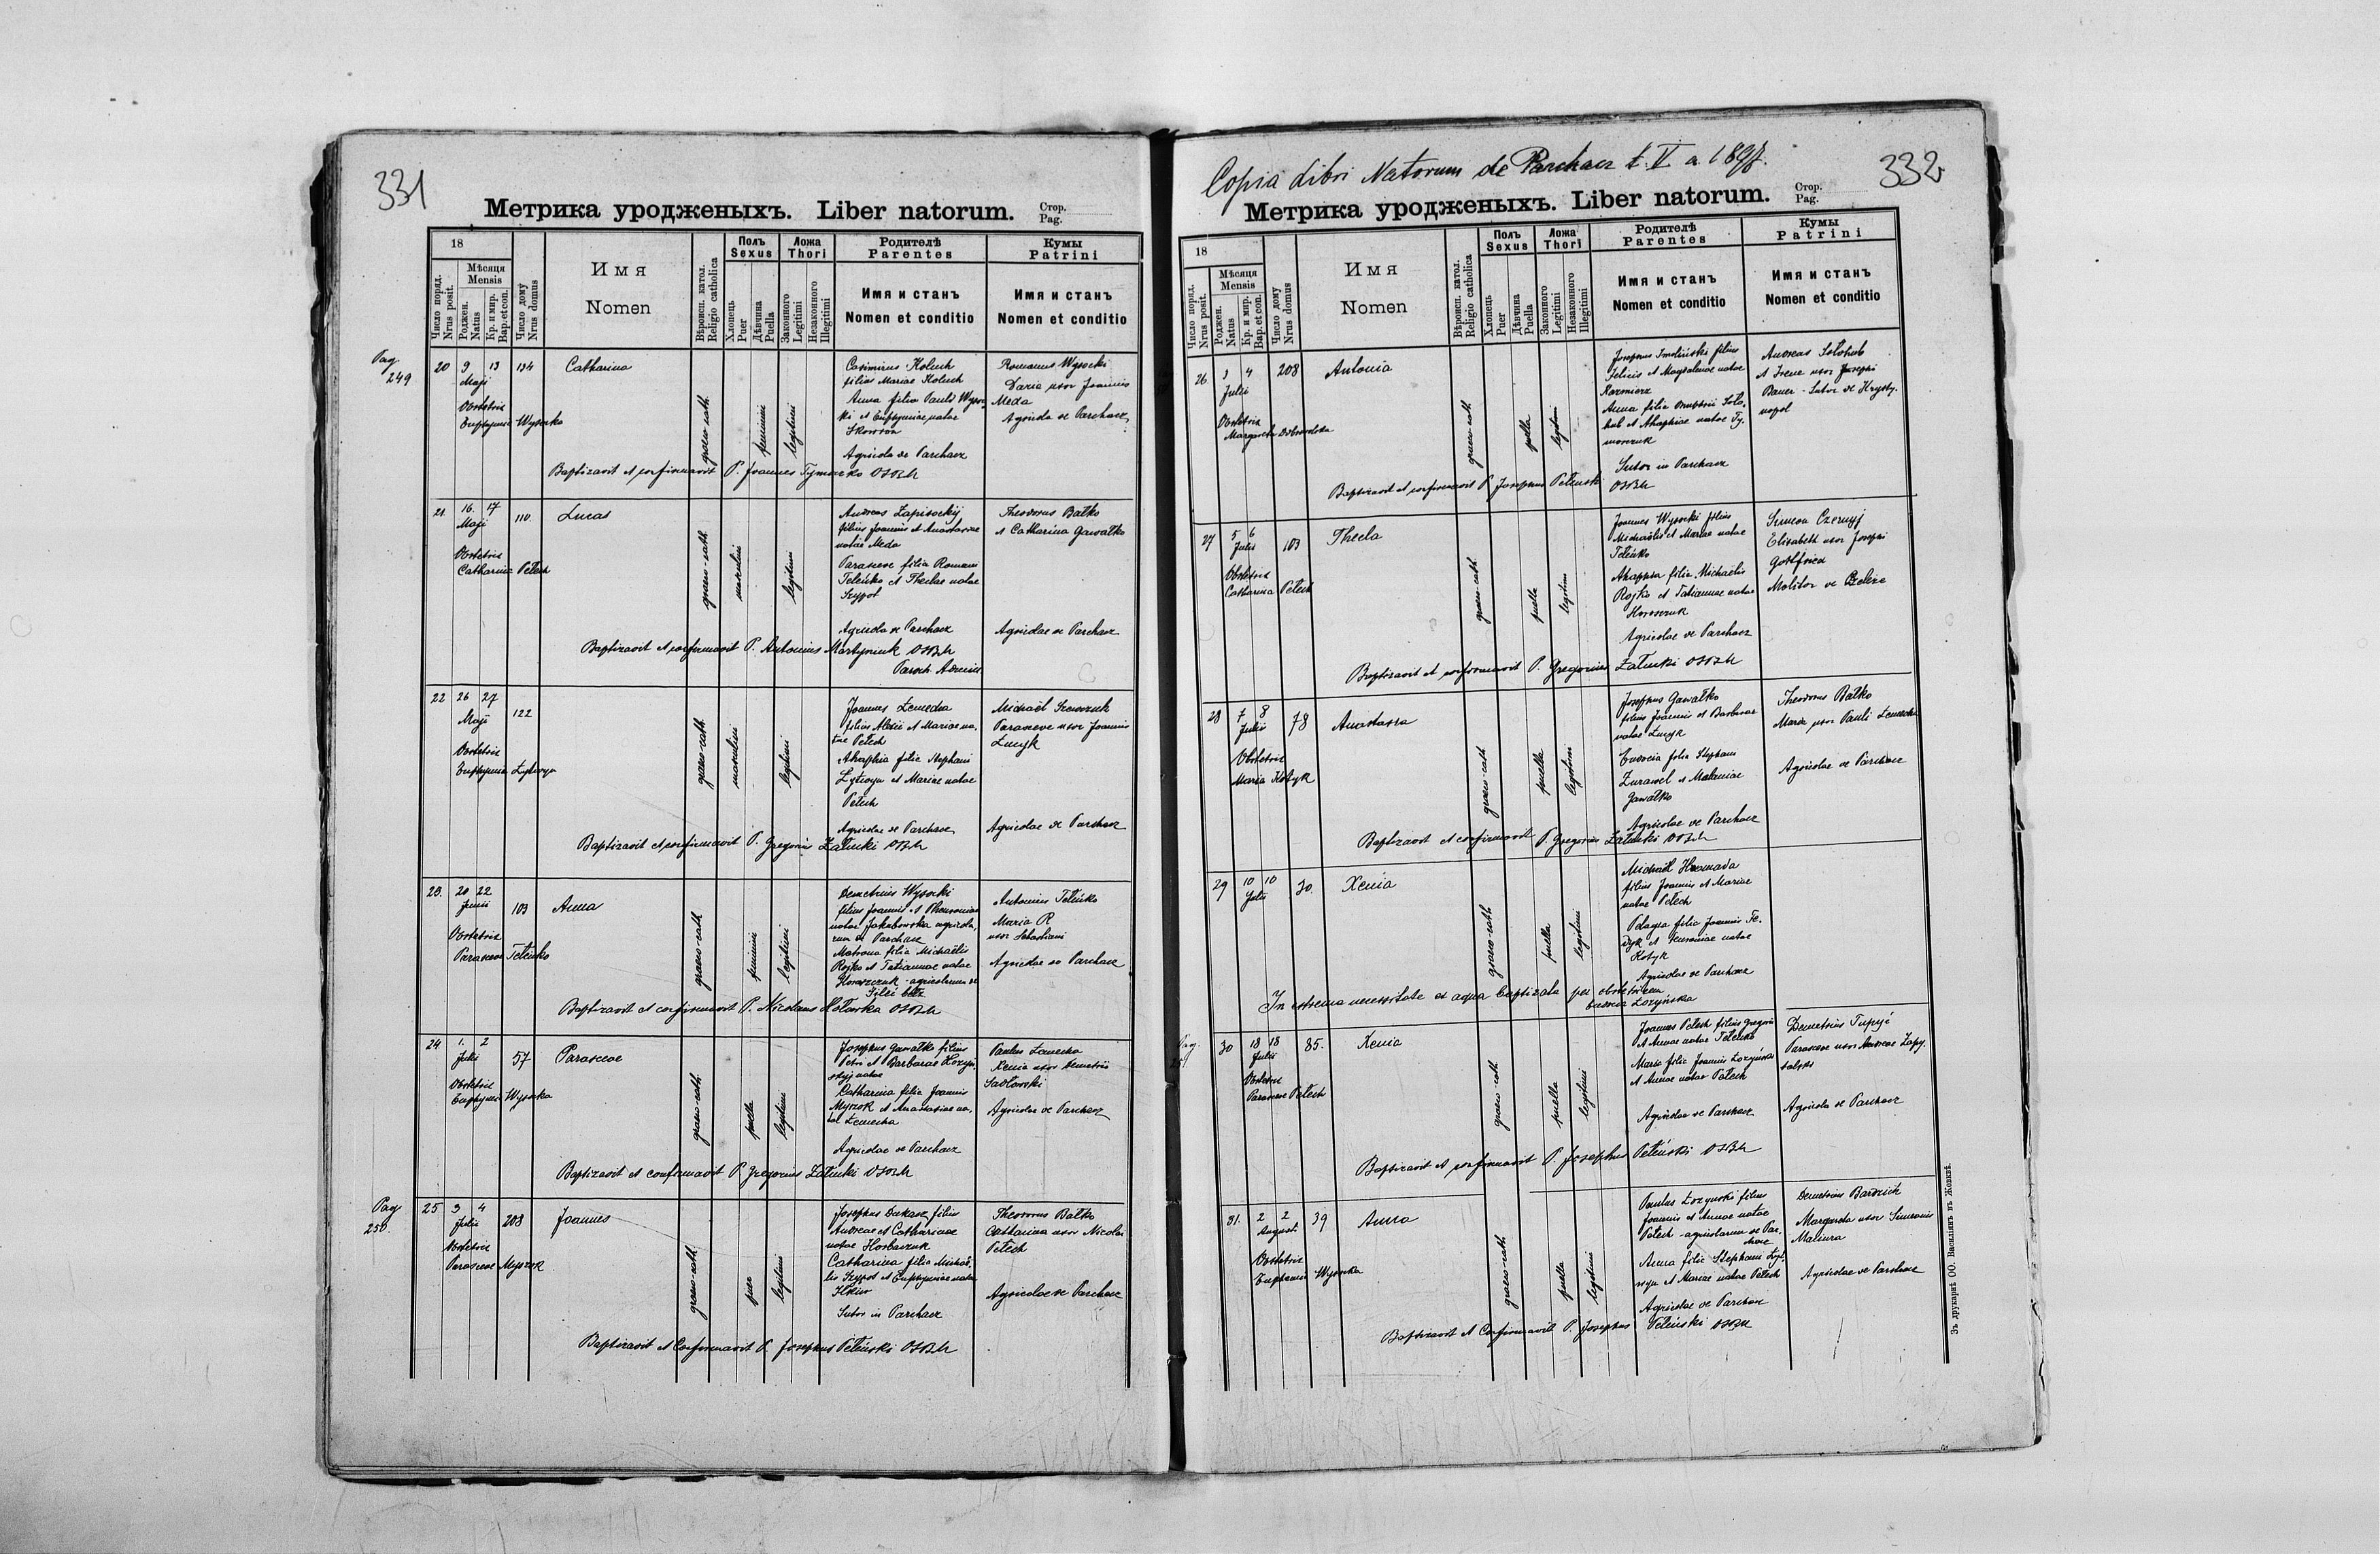 331
Метрика уродженыхъ. Liber natorum.
Стор.
Pag.
18
Число поряд.
Nrus posit.
Мѣсяця
Mensis
Роджен.
Natus
Кр. и мир.
Bap. et con.
Число дому
Nrus domus
Имя
Nomen
Вѣроисп. катол.
Religio catholica
Полъ
Sexus
Хлопець
Puer
Дѣвчина
Puella
Ложа
Thori
Законного
Legitimi
Незаконного
Illegitimi
Родителѣ
Parentes
Имя и станъ
Nomen et conditio
Кумы
Patrini
Имя и станъ
Nomen et conditio
Pag.
249
20 9 13 134 Catharina
Maji
Obstetrix
Euphymia Wysocka
graeco-cath.
feminini
legitimi
Casimirus Holuch
filius Mariae Holuch
Anna filia Pauli Wysoc
ki et Euphymiae natae
Skowron
Agricola de Parchacz
Romanus Wysocki
Daria uxor Joannis
Meda
Agricola de Parchacz
Baptizavit et confirmavit P. Joannes Tymoczko OSBM
21. 16. 17 110. Lucas
Maji
Obstetrix
Catharina Petech
graeco-cath.
masculini
legitimi
Andreas Zapisockij
filius Joannis et Anastasiae
natae Meda
Parasceve filia Romani
Teleńko et Theclae natae
Szypot
Agricola de Parchacz
Theodorus Batko
et Catharina Gawatko
Agricolae de Parchacz
Baptizavit et confirmavit P. Antonius Martyniuk OSBM
Paroch. Admin.
22 26 27 122
Maji
Obstetrix
Euphymia Łytwyn
graeco-cath.
masculini
legitimi
Joannes Lemecha
filius Alexii et Mariae na-
tae Petech
Ahaphia filia Stephani
Łytwyn et Mariae natae
Petech
Agricolae de Parchacz
Michaël Szewczuk
Parasceve uxor Joannis
Lucyk
Agricolae de Parchacz
Baptizavit et confirmavit P. Gregorius Załucki OSBM
23. 20 22 103 Anna
Junii
Obstetrix
Parasceve Teleńko
graeco-cath.
feminini
legitimi
Demetrius Wysocki
filius Joannis et
natae Jakubowska agricola-
rum de Parchacz
Matrona filia Michaëlis
Rojko et Tatiannae natae
Horoszczuk - agricolarum de
Antonius Teleńko
Maria R
uxor Sebastiani
Agricolae de Parchacz
Baptizavit et confirmavit P. Nicolaus OSBM
24 1. 2 57 Parasceve
Julii
Obstetrix
Euphymia Wysocka
graeco-cath.
puella
legitimi
Josephus Gawatko filius
Petri et Barbarae
natae
Catharina filia Joannis
Myszok et Anastasiae na-
tae Lemecha
Agricolae de Parchacz
Paulus Lemecha
Xenia uxor Demetrii
Sadłowski
Agricolae de Parchacz
Baptizavit et confirmavit P. Gregorius Załucki OSBM
Pag
250.
25 3 4 203 Joannes
Julii
Obstetrix
Parasceve Myszok
graeco-cath.
puer
legitimi
Josephus Dukacz filius
Andreae et Catharinae
natae Horbaczuk
Catharina filia Michaë-
lis Szypot et Euphymiae natae
Sutor in Parchacz
Theodorus Batko
Catharina uxor Nicolai
Petech
Agricolae de Parchacz
Baptizavit et Confirmavit P. Josephus Peteński OSBM
Copia Libri Natorum de Parchacz t. V a 1897.
332
Метрика уродженыхъ. Liber natorum.
Стор.
Pag.
18
Число поряд.
Nrus posit.
Мѣсяця
Mensis
Роджен.
Natus
Кр. и мир.
Bap. et con.
Число дому
Nrus domus
Имя
Nomen
Вѣроисп. катол.
Religio catholica
Полъ
Sexus
Хлопець
Puer
Дѣвчина
Puella
Ложа
Thori
Законного
Legitimi
Незаконного
Illegitimi
Родителѣ
Parentes
Имя и станъ
Nomen et conditio
Кумы
Patrini
Имя и станъ
Nomen et conditio
26. 3 4 208 Antonia
Julii
Obstetrix
Margareta Dobrowolska
graeco-cath.
puella
legitimi
Josephus Smoliński filius
Felicis et Magdalenae natae
Kazmierz
Anna filia Dmitrii Soło-
hub et Ahaphiae natae Ty-
moszczuk
Sutor in Parchacz
Andreas Sołohub
et Irene uxor Josephi
Bauer - Sutor de Krysty-
nopol
Baptizavit et confirmavit P. Josephus Peteński OSBM
27 5 6 103 Thecla
Julii
Obstetrix
Catharina Petech
graeco-cath.
puella
legitimi
Joannes Wysocki filius
Michaëlis et Mariae natae
Teleńko
Ahaphia filia Michaëlis
Rojko et Tatiannae natae
Agricolae de Parchacz
Simeon Czernyj
Elisabeth uxor Josephi
Gottfried
Molitor de
Baptizavit et confirmavit P. Gregorius Załucki OSBM
28 7 8 78 Anastasia
Julii
Obstetrix
Maria Kotyk
graeco-cath.
puella
legitimi
Josephus Gawatko
filius Joannis et Barbarae
natae Lucyk
Eudocia filia Stephani
Zurawel et Melaniae
Gawatko
Agricolae de Parchacz
Theodorus Batko
Maria uxor Pauli Lemecha
Agricolae de Parchacz
Baptizavit et confirmavit P. Gregorius Załucki OSBM
29 10 10 30. Xenia
Julii
graeco-cath.
puella
legitimi
Michaël Hromada
filius Joannis et Mariae
natae Petech
Pelagia filia Joannis Fe-
dyk et natae
Kotyk
Agricolae de Parchacz
In extrema necessitate ex aqua baptizata per obstetricem
Eudocia Łozyńska
Pag.
251
30 18 18 85. Xenia
Julii
Obstetrix
Parasceve Petech
graeco-cath.
puella
legitimi
Joannes Petech filius Gregorii
et Annae natae Teleńko
Maria filia Joannis Łozyńska
et Annae natae Petech
Agricolae de Parchacz
Demetrius Tupyś
Parasceve uxor Andreae Zapy-
Agricola de Parchacz
Baptizavit et confirmavit P. Josephus Peteński OSBM
31. 2 2 39 Anna
Augusti
Obstetrix
Euphemia Wysocka
graeco-cath.
puella
legitimi
Paulus Łozynski filius
Joannis et Annae natae
Petech - agricolarum de Par-
chacz
Anna filia Stephani Łyt-
wyn et Mariae natae Petech
Agricolae de Parchacz
Demetrius
Margareta uxor Simeonis
Agricolae de Parchacz
Baptizavit et Confirmavit P. Josephus Peteński OSBM
Зъ друкарнѣ ОО. Василіянъ въ Жовквѣ.